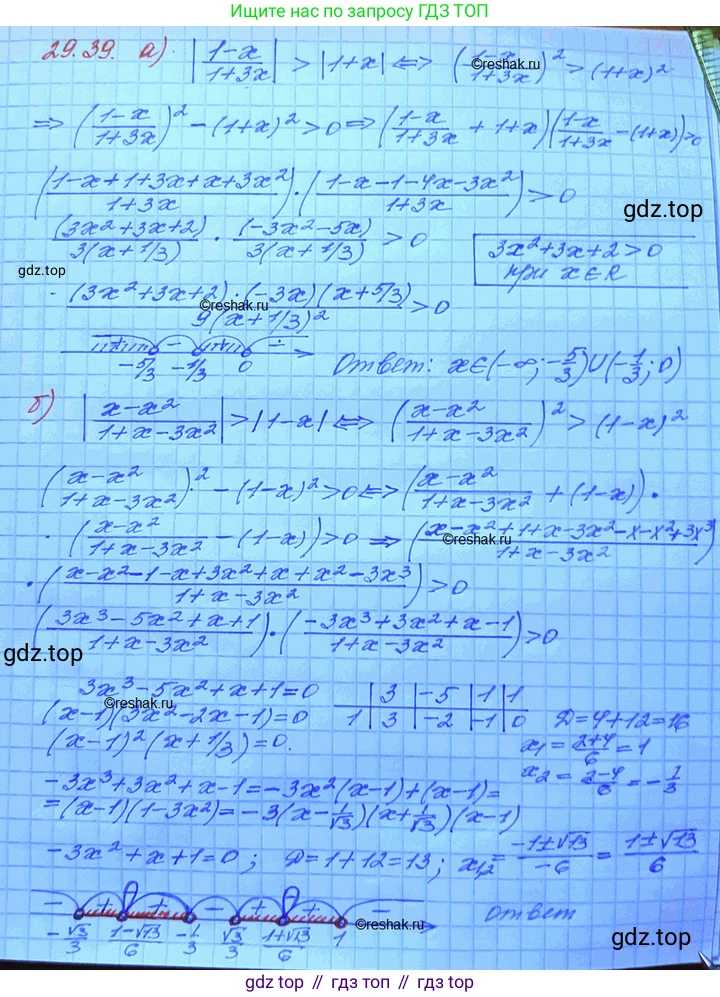 Ищите нас по запросу ГДЗ ТОП
29.39. а). |(1-x)/(1+3x)| > |1+x| ⟺ ((1-x)/(1+3x))² > (1+x)²
©reshak.ru
⟹ ((1-x)/(1+3x))² - (1+x)² > 0 ⟹ ((1-x)/(1+3x) + 1+x)((1-x)/(1+3x) - (1+x)) > 0
((1-x+1+3x+x+3x²)/(1+3x)) · ((1-x-1-4x-3x²)/(1+3x)) > 0
gdz.top
(3x²+3x+2)/(3(x+1/3)) · (-3x²-5x)/(3(x+1/3)) > 0
3x²+3x+2>0
при x∈R
gdz.top
(3x²+3x+2)·(-3x)(x+5/3)/(9(x+1/3)²) > 0
©reshak.ru
+ - + -
-5/3 -1/3 0
Ответ: x∈(-∞; -5/3)∪(-1/3; 0)
б) |(x-x²)/(1+x-3x²)| > |1-x| ⟺ ((x-x²)/(1+x-3x²))² > (1-x)²
((x-x²)/(1+x-3x²))² - (1-x)² > 0 ⟺ ((x-x²)/(1+x-3x²) + (1-x)) ·
· ((x-x²)/(1+x-3x²) - (1-x)) > 0 ⟹ ((x-x²+1+x-3x²-x-x²+3x³)/(1+x-3x²))
©reshak.ru
· ((x-x²-1-x+3x²+x+x²-3x³)/(1+x-3x²)) > 0
((3x³-5x²+x+1)/(1+x-3x²)) · ((-3x³+3x²+x-1)/(1+x-3x²)) > 0
gdz.top
3x³-5x²+x+1=0
3 | -5 | 1 | 1
©reshak.ru
(x-1)(3x²-2x-1)=0
1 | 3 | -2 | -1 | 0
D=4+12=16
(x-1)²(x+1/3)=0.
x₁ = (2+4)/6 = 1
x₂ = (2-4)/6 = -1/3
-3x³+3x²+x-1=-3x²(x-1)+(x-1)=
=(x-1)(1-3x²)=-3(x-1/√3)(x+1/√3)(x-1)
-3x²+x+1=0; D=1+12=13; x₁,₂ = (-1±√13)/(-6) = (1±√13)/6
- + + - + + -
©reshak.ru
-√3/3 (1-√13)/6 -1/3 √3/3 (1+√13)/6 1
Ответ
gdz.top
gdz.top // гдз топ // gdz.top